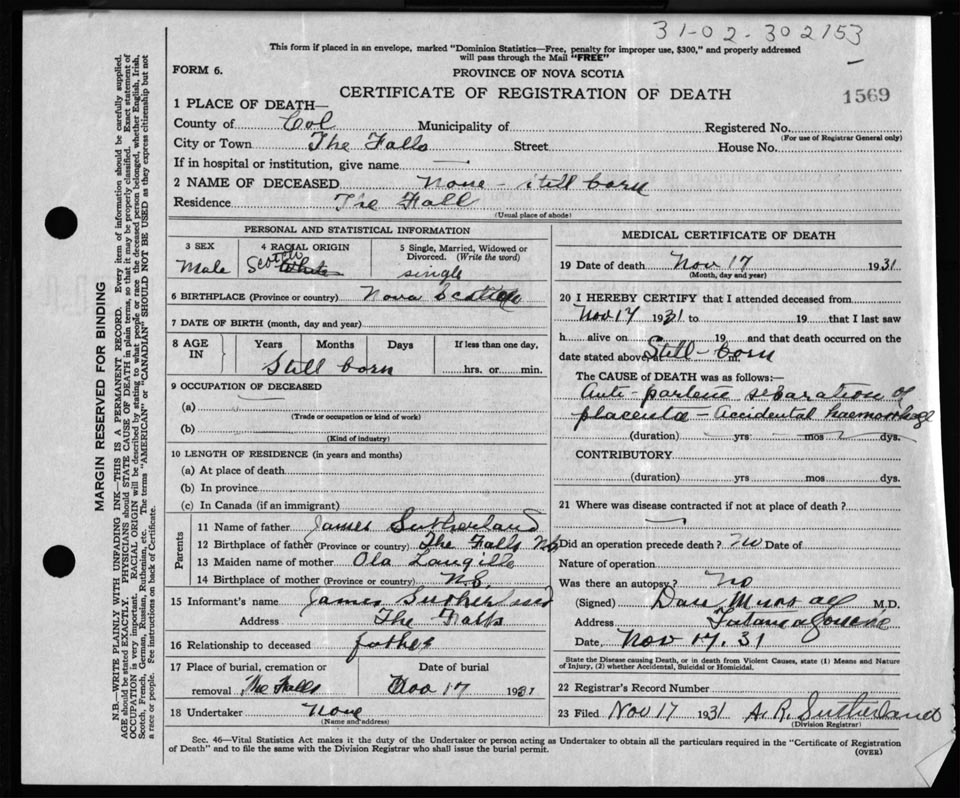 31-02-302153
This form if placed in an envelope, marked "Dominion Statistics—Free, penalty for improper use, $300," and properly addressed
will pass through the Mail "FREE"
FORM 6.
PROVINCE OF NOVA SCOTIA
CERTIFICATE OF REGISTRATION OF DEATH
1569
1 PLACE OF DEATH—
County of Col Municipality of Registered No.
(For use of Registrar General only)
City or Town The Falls Street House No.
If in hospital or institution, give name —
2 NAME OF DECEASED None - still born
Residence The Fall
(Usual place of abode)
PERSONAL AND STATISTICAL INFORMATION
3 SEX
Male
4 RACIAL ORIGIN
Scotch White
5 Single, Married, Widowed or
Divorced. (Write the word)
single
6 BIRTHPLACE (Province or country) Nova Scotia
7 DATE OF BIRTH (month, day and year)
8 AGE IN Years Months Days If less than one day,
Still born hrs. or min.
9 OCCUPATION OF DECEASED
(a)
(Trade or occupation or kind of work)
(b)
(Kind of industry)
10 LENGTH OF RESIDENCE (in years and months)
(a) At place of death
(b) In province
(c) In Canada (if an immigrant)
Parents
11 Name of father James Sutherland
12 Birthplace of father (Province or country) The Falls N.S.
13 Maiden name of mother Ola Langille
14 Birthplace of mother (Province or country) N.S.
15 Informant's name James Sutherland
Address The Falls
16 Relationship to deceased father
17 Place of burial, cremation or Date of burial
removal The Falls Nov 17 1931
18 Undertaker None
(Name and address)
MEDICAL CERTIFICATE OF DEATH
19 Date of death Nov 17 1931
(Month, day and year)
20 I HEREBY CERTIFY that I attended deceased from
Nov 17 1931 to 19 that I last saw
h alive on 19 and that death occurred on the
date stated above, at m. Still-born
The CAUSE OF DEATH was as follows:—
Anti-partene separation of
placenta - Accidental haemorrhage
(duration) yrs mos dys.
CONTRIBUTORY
(duration) yrs mos dys.
21 Where was disease contracted if not at place of death?
Did an operation precede death? No Date of
Nature of operation
Was there an autopsy? No
(Signed) Dan Murray M.D.
Address Tatamagouche
Date, Nov 17. 31
State the Disease causing Death, or in death from Violent Causes, state (1) Means and Nature
of Injury, (2) whether Accidental, Suicidal or Homicidal.
22 Registrar's Record Number
23 Filed Nov 17 1931 A. R. Sutherland
(Division Registrar)
Sec. 46—Vital Statistics Act makes it the duty of the Undertaker or person acting as Undertaker to obtain all the particulars required in the "Certificate of Registration
of Death" and to file the same with the Division Registrar who shall issue the burial permit.
(OVER)
MARGIN RESERVED FOR BINDING
N.B.—WRITE PLAINLY WITH UNFADING INK—THIS IS A PERMANENT RECORD. Every item of information should be carefully supplied.
AGE should be stated EXACTLY. PHYSICIANS should STATE CAUSE OF DEATH in plain terms, so that it may be properly classified. Exact statement of
OCCUPATION is very important. RACIAL ORIGIN will be described by stating to what people or race the deceased person belonged, whether English, Irish,
Scotch, French, German, Russian, Ruthenian, etc. The terms "AMERICAN" or "CANADIAN" SHOULD NOT BE USED as they express citizenship but not
a race or people. See instructions on back of Certificate.